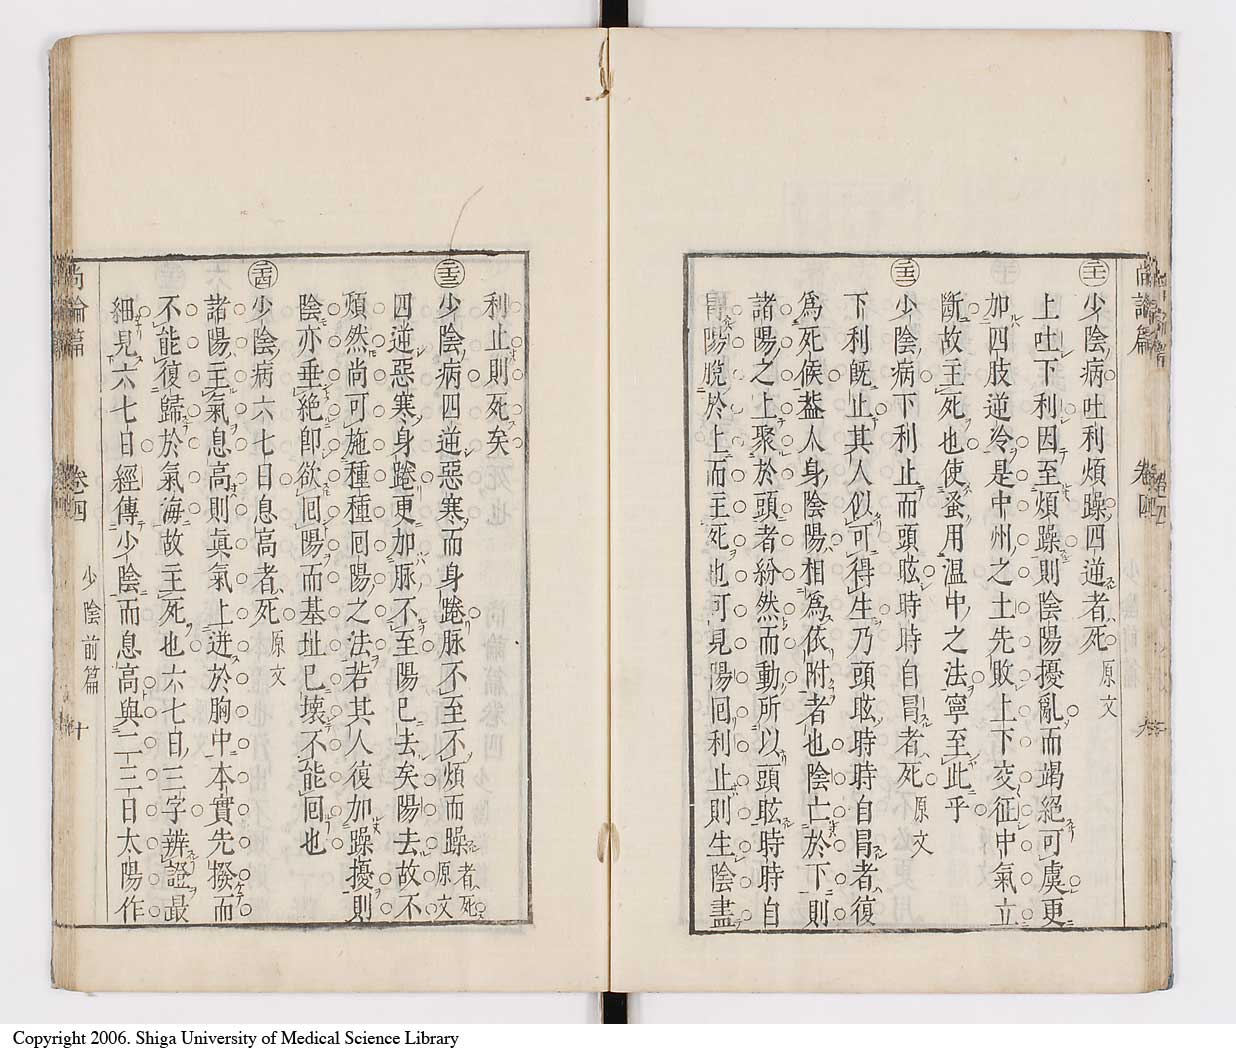 尚論篇 卷四
㊁㊀少陰病吐利煩躁四逆者死原文
上吐下利因至煩躁則陰陽擾亂而竭絕可虞更
加四肢逆冷是中州之土先敗上下交征中氣立
斷故主死也使蚤用温中之法寧至此乎
少陰病下利止而頭眩時時自冒者死原文
下利旣止其人似可得生乃頭眩時時自冒者復
爲死候葢人身陰陽相爲依附者也陰亡於下則
諸陽之上聚於頭者紛然而動所以頭眩時時自
冒陽脫於上而主死也可見陽回利止則生陰盡
利止則死矣
少陰病四逆惡寒而身踡脉不至不煩而躁者死原文
四逆惡寒身踡更加脉不至陽已去矣陽去故不
煩然尚可施種種回陽之法若其人復加躁擾則
陰亦垂絕卽欲回陽而基址已壞不能回也
少陰病六七日息高者死原文
諸陽主氣息高則眞氣上迸於胸中本實先撥而
不能復歸於氣海故主死也六七日三字辨證最
細見六七日經傳少陰而息高與二三日太陽作
尚論篇 卷四 少陰前篇 十
Copyright 2006. Shiga University of Medical Science Library